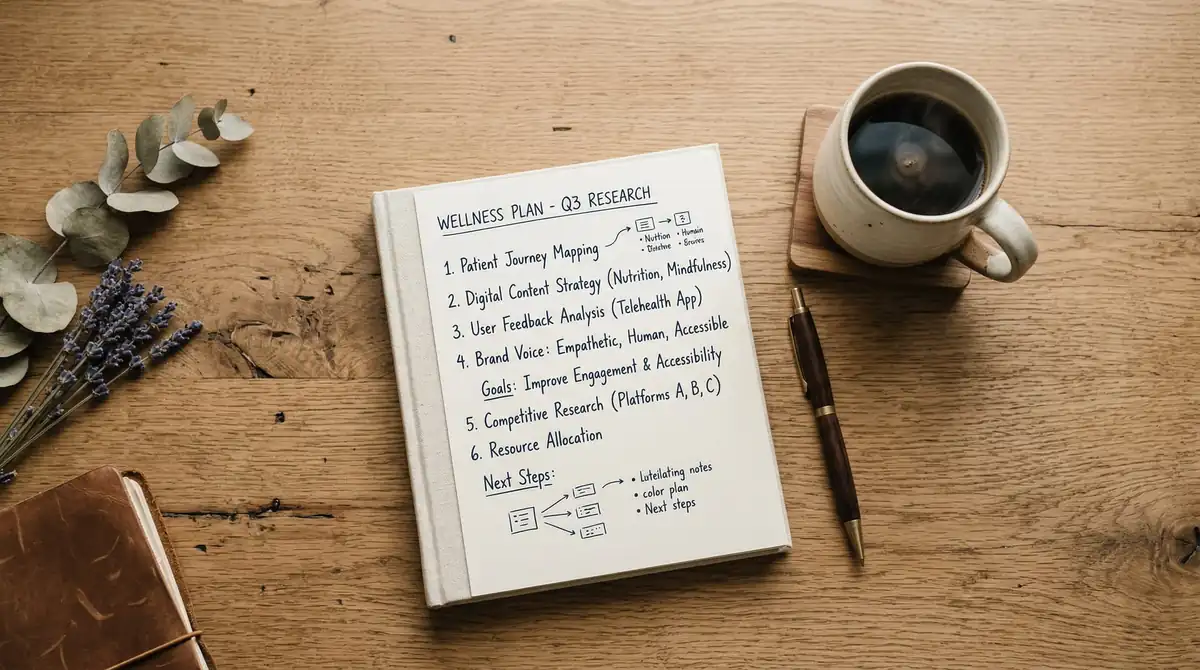 WELLNESS PLAN - Q3 RESEARCH
1. Patient Journey Mapping
• Humain
2. Digital Content Strategy (Nutrition, Mindfulness)
3. User Feedback Analysis (Telehealth App)
4. Brand Voice: Empathetic, Human, Accessible
Goals: Improve Engagement & Accessibility
5. Competitive Research (Platforms A, B, C)
6. Resource Allocation
Next Steps:
• Luteilating notes
• color plan
• Next steps